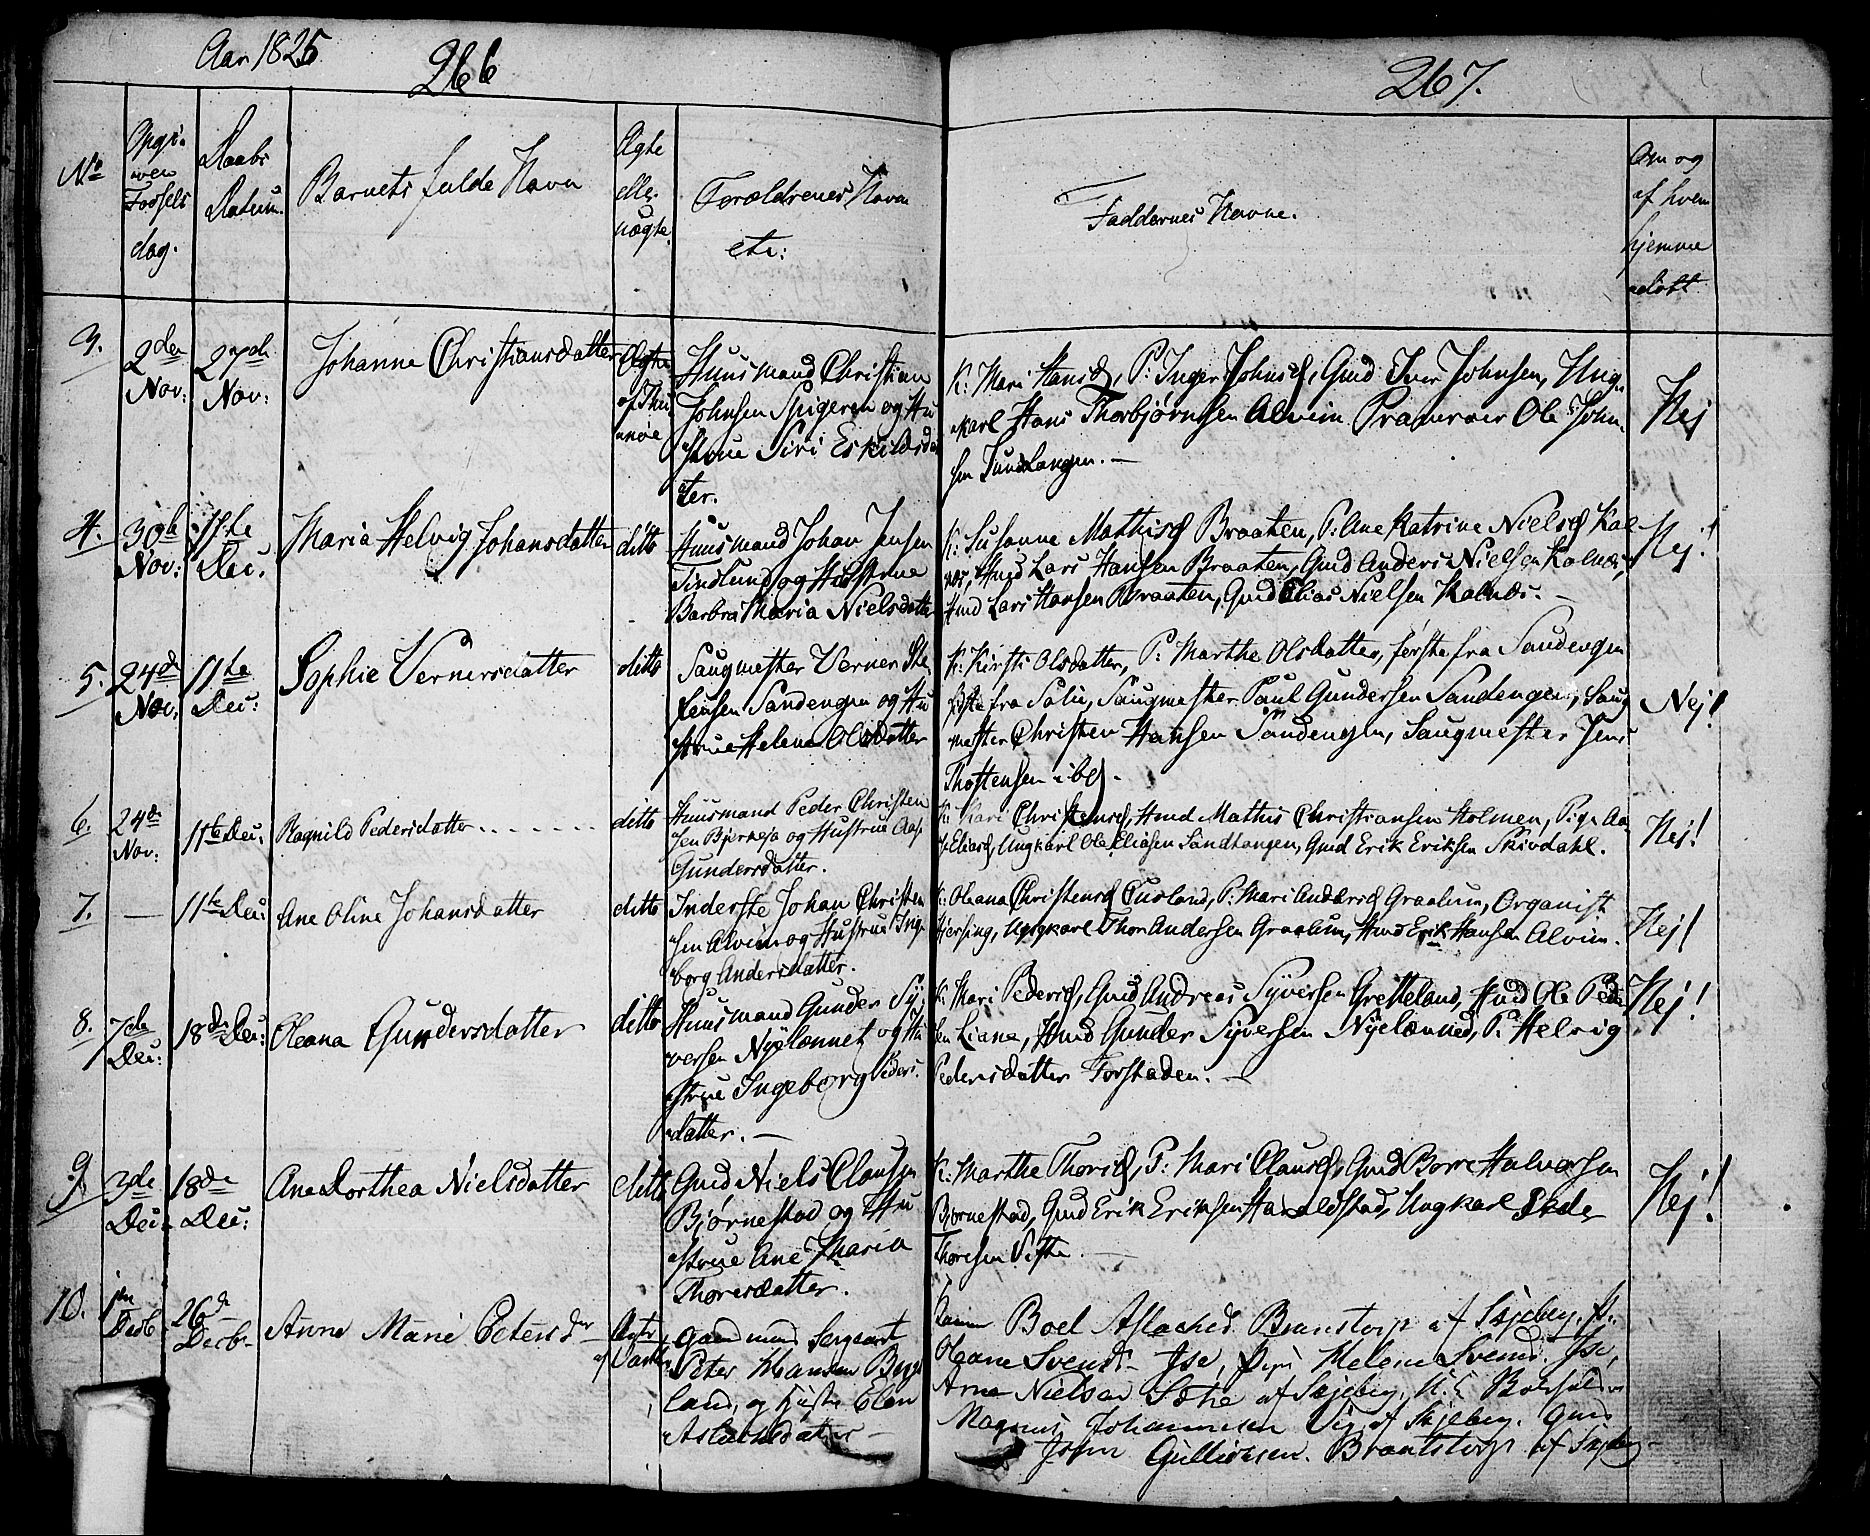 Aar 1825
266
267.
No
Opgi-
ven
Fødsels
dag.
Daabs
Datum.
Barnets fulde Navn
Ægte
eller
uægte.
Forældrenes Navn
etc:
Faddernes Navne.
Om og
af hvem
hjemme
døbt
3.
2den
Nov:
27de
Nov:
Johanne Christiansdatter
Ægte
af Thu
nøe
Huusmand Christian
Johnsen Spigeren og Hu
strue Siri Eskildsda
ter.
K: Mari Hansd, P: Inger Johnsd, Gmd Iver Johnsen, Ung-
karl Hans Thorbjørnsen Alvim Prammer Ole John-
sen Sundtangen. —
Nej
4.
30te
Nov:
11te
Dec.
Maria Helvig Johansdatter
ditto
Huusmand Johan Jensen
Tindlund og Hustrue
Barbra Maria Nielsdatter
K: Susanne Mathisd Braaten, P: Ane Katrine Nielsd Kal
næs, Hmd Lars Hansen Braaten, Gmd Anders Nielsen Kalnæs,
Hmd Lars Hansen Braaten, Gmd Elias Nielsen Kalnæs. —
Nej!
5.
24de
Nov:
11te
Dec:
Sophie Vernersdatter
ditto
Saugmester Verner Ste
fensen Sandengen og Hu
strue Helene Olsdatter
K: Kirsti Olsdatter, P: Marthe Olsdatter, første fra Sandengen
sidste fra Solie, Saugmester Paul Gundersen Sandengen, Saug
mester Christen Hansen Sandengen, Saugmester Jens
Thostensen ibd.
Nej!
6.
24de
Nov:
11te Dec:
Ragnild Pedersdatter . . . . . . .
ditto
Huusmand Peder Christen
sen Bjørnesø og Hustrue Aase
Gundersdatter.
K: Kari Christensd, Hmd Mathis Christiansen Holmen, Pige Aa
se Eliasd, Ungkarl Ole Eliasen Sandtangen, Gmd Erik Eriksen Skivdahl.
Nej!
7.
—
11te Dec:
Ane Oline Johansdatter
ditto
Inderste Johan Christen
sen Alvim og Hustrue Inge
borg Andersdatter.
K: Oleana Christensd Tusland, P: Mari Andersd Graalum, Organist
Hersing, Ungkarl Thor Andersen Graalum, Hmd Erik Hansen Alvim.
Nej!
8.
7de
Dec:
18de Dec:
Oleana Gundersdatter
ditto
Huusmand Gunder Sy
versen Nyelænnet og Hu
strue Ingeborg Peders.
datter. —
K: Mari Pedersd, Gmd Andreas Syversen Gretteland, Hmd Ole Peder
sen Liane, Hmd Gunder Syversen Nyelænned, P: Helvig
Pedersdatter Forstaden. —
Nej!
9.
3de
Dec:
18de
Dec:
Ane Dorthea Nielsdatter
ditto
Gmd Niels Clausen
Bjørnestad og Hu
strue Ane Maria
Thoresdatter.
K: Marthe Thorisd, P: Mari Clausd, Gmd Borre Halvorsen
Bjørnestad, Gmd Erik Eriksen Haraldstad, Ungkarl Peder
Thoresen Vister. —
Nej!
10.
1ste
Decb
26de
Decbr
Anne Marie Petersdtr
Ægte
af
Gaardmand Sergeant
Peter Hansen Berge
land, og Hustr Elen
Aslachsdatter —
Konen Boel Aslachsd. Brandstorp af Skjeberg, P.
Oleane Svends. Ise, Pige Helene Svends. Ise,
Arne Nielsen Sæthe af Skjeberg,
Magnus Johannesen Vig, af Skjeberg. Gmd
John Gulliksen Brandstorp af Skjeberg